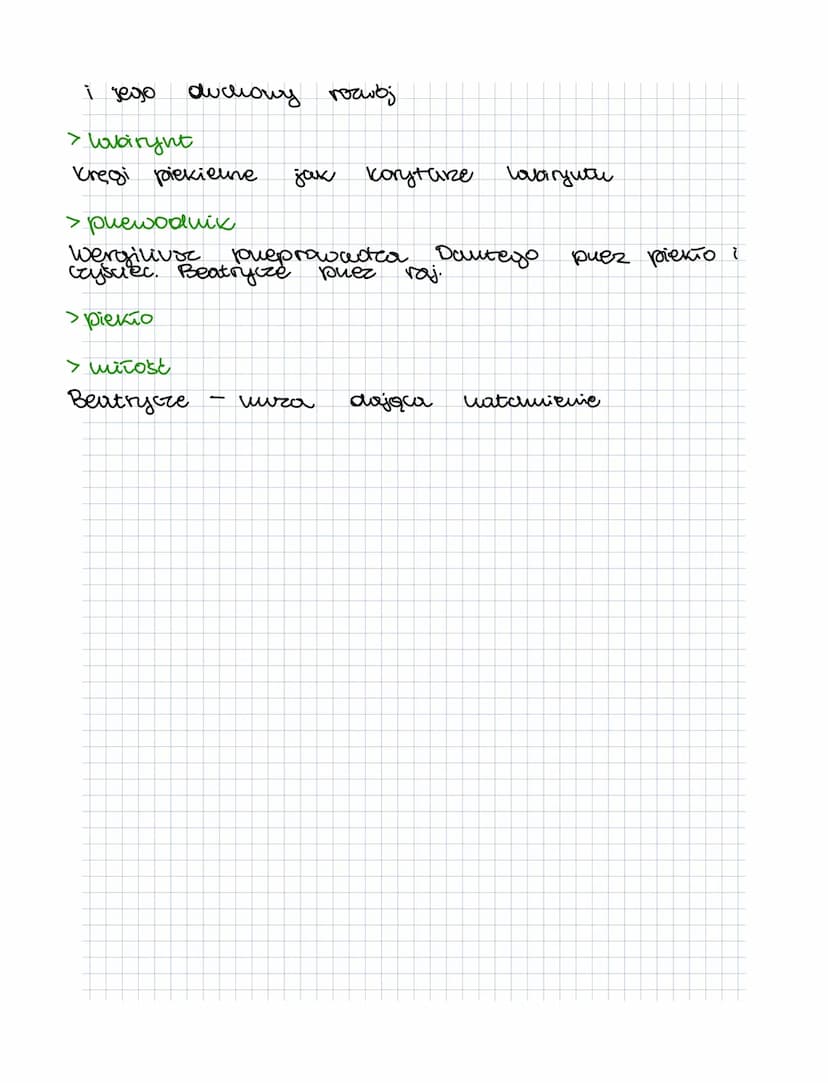 i jego duchowy rozwój
> labirynt
Kręgi piekielne jak korytarze labiryntu
> przewodnik
Wergiliusz przeprowadza Dantego przez piekło i
czyściec. Beatrycze przez raj.
> piekło
> miłość
Beatrycze - muza dająca natchnienie